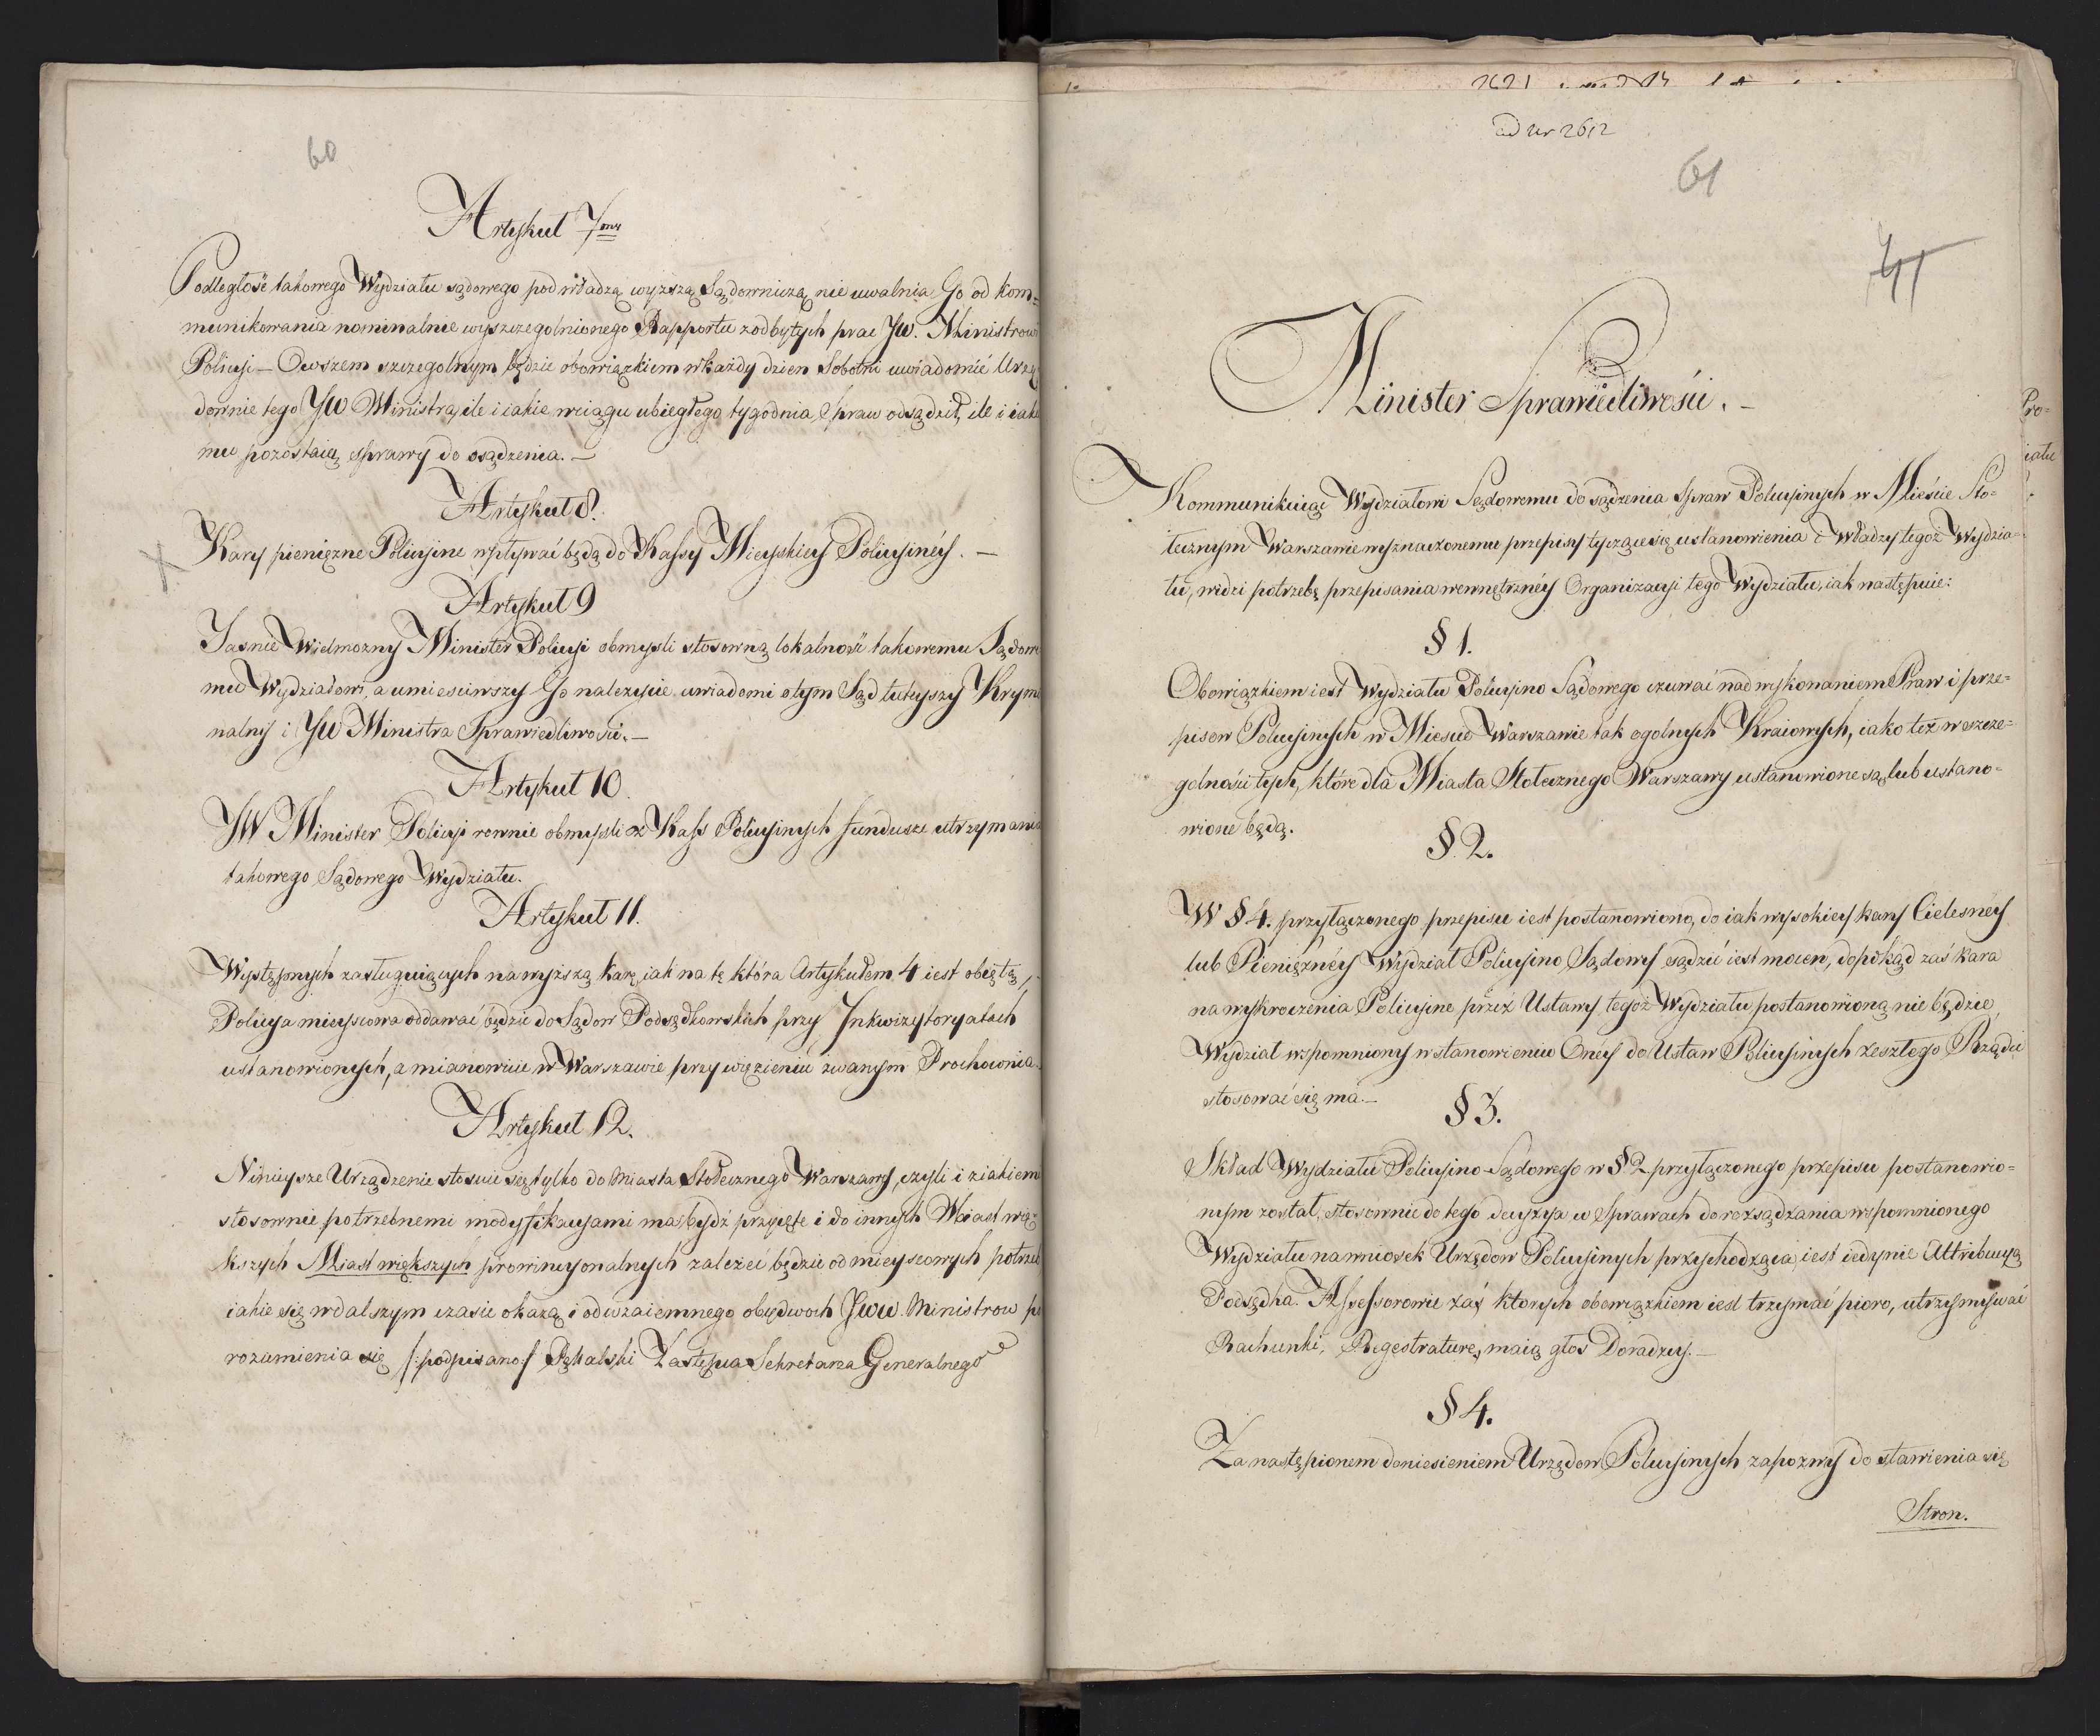 60
Artykuł 7my
Podległość takowego Wydziału sądowego pod władzą wyższą Sądowniczą nie uwalnia Go od kom=
munikowania nominalnie wyszczegolnionego Rapportu z odbytych prac JW. Ministrowi
Policyi – Owszem szczegolnym będzie obowiązkiem w każdy dzien Sobotni uwiadomić Urzę
downie tego JW Ministra, ile i iakie w ciągu ubiegłego tygodnia Spraw odsądził, ile i iakie
mu pozostaią sprawy do osądzenia. –
Artykuł 8.
X Kary pieniężne Policyine wpływać będą do Kassy Mieyskiey Policyinéy. –
Artykuł 9
Jasnie Wielmozny Minister Policyi obmysli stosowną lokalność takowemu Sądowe
mu Wydziałowi, a umiesciwszy Go nalezycie uwiadomi o tym Sąd tuteyszy Krymi
nalny i JW Ministra Sprawiedliwości. –
Artykuł 10.
JW Minister Policyi rownie obmysli z Kass Policyinych fundusze utrzymania
takowego Sądowego Wydziału.
Artykuł 11.
Występnych zasługuiących na wyższą karę, iak na tę która Artykułem 4 iest obiętą,
Policya mieyscowa oddawać będzie do Sądow Podsędkowskich przy Inkwizytoryatach
ustanowionych, a mianowicie w Warszawie przy więzieniu zwanym Prochownia.
Artykuł 12.
Ninieysze Urządzenie stosuie się tylko do Miasta Stołecznego Warszawy, czyli i z iakiemi
stosownie potrzebnemi modyfikacyami ma bydź przyięte i do innych Miast wię
kszych Miast większych prowincyonalnych zależeć będzie od mieyscowych potrzeb
iakie się w dalszym czasie okażą i od wzaiemnego obydwoch JWW. Ministrow po
rozumienia się /:podpisano:/ Pękalski Zastępca Sekretarza Generalnego
ad Nr 2612
61
41
Minister Sprawiedliwości. –
Kommunikuiąc Wydziałowi Sądowemu do sądzenia Spraw Policyinych w Mieście Sto=
łecznym Warszawie wyznaczonemu przepisy tyczące się ustanowienia i Władzy tegoż Wydzia=
łu, widzi potrzebę przepisania wewnętrznéy Organizacyi tego Wydziału, iak następuie:
§ 1.
Obowiązkiem iest Wydziału Policyino Sądowego czuwać nad wykonaniem Praw i prze=
pisow Policyinych w Miescie Warszawie tak ogolnych Kraiowych, iako też w szcze=
golności tych, które dla Miasta Stołecznego Warszawy ustanowione są, lub ustano=
wione będą.
§ 2.
W § 4. przyłączonego przepisu iest postanowiono, do iak wysokiey kary Cielesnéy
lub Pieniężnéy Wydział Policyino Sądowy sądzić iest mocen, dopokąd zaś kara
na wykroczenia Policyine przez Ustawy tegoż Wydziału postanowioną nie będzie,
Wydział wspomniony w stanowieniu Onéy do Ustaw Policyinych zeszłego Rządu
stosować się ma. –
§ 3.
Skład Wydziału Policyino-Sądowego w § 2 przyłączonego przepisu postanowio=
nym został, stosownie do tego decyzya w Sprawach do rozsądzania wspomnionego
Wydziału na wniosek Urzędow Policyinych przychodząca, iest iedynie Attribucyą
Podsędka. Assessorowie zaś ktorych obowiązkiem iest trzymać pioro, utrzymywać
Rachunki, Regestraturę, maią głos Doradzcy. –
§ 4.
Za nastąpionem doniesieniem Urzędow Policyinych zapozwy do stawienia się
Stron.
Pro=
iału